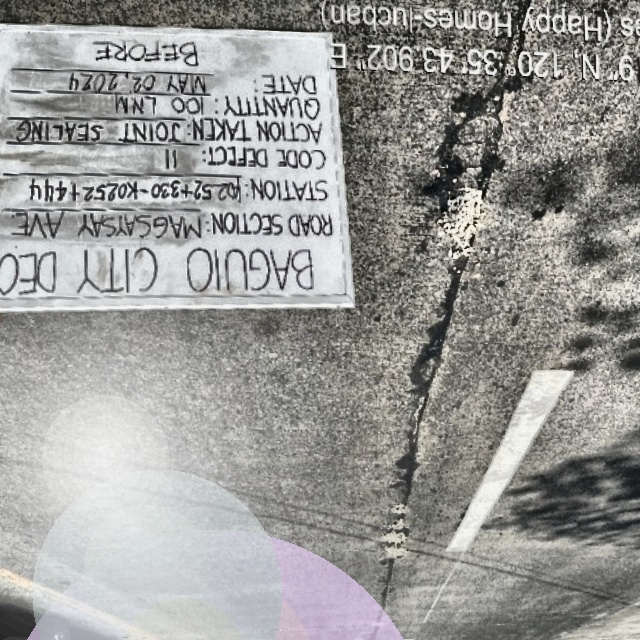 BAGUIO CITY DEO
ROAD SECTION: MAGSAYSAY AVE
STATION: K0252+330-K0252+444
CODE DEFECT: 11
ACTION TAKEN: JOINT SEALING
QUANTITY: 100 LNM
DATE: MAY 02, 2024
BEFORE
9" N, 120° 35' 43.902" E
s (Happy Homes-lucban)